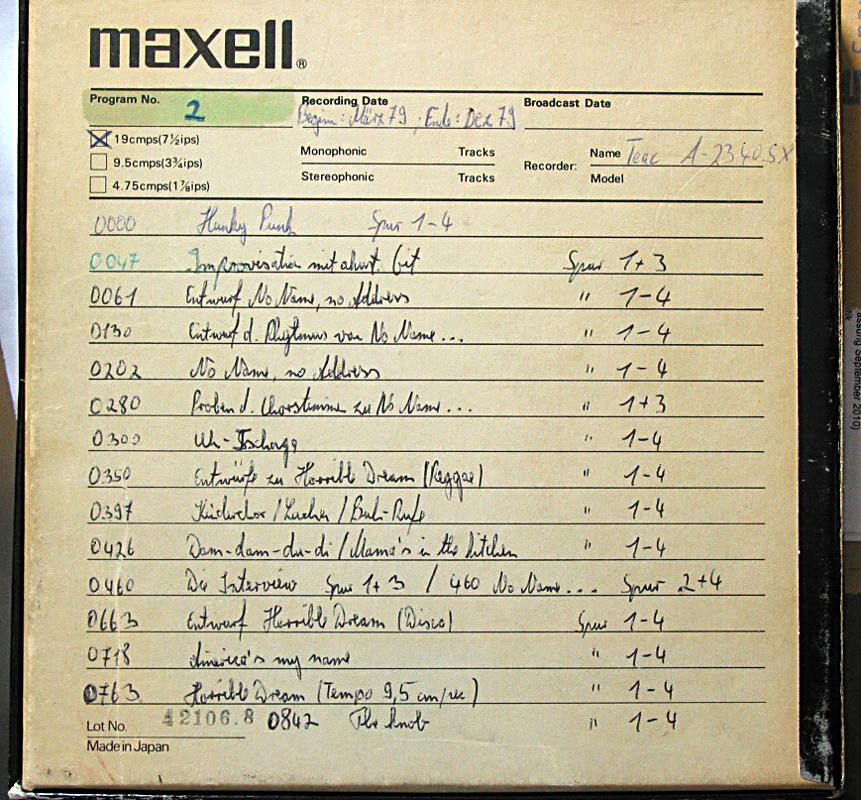 maxell®
Program No. 2 Recording Date Broadcast Date
Beginn: März 79 ; Ende: Dez 79
19cmps(7½ips)
9.5cmps(3¾ips) Monophonic Tracks Recorder: Name Teac A-2340SX
4.75cmps(1⅞ips) Stereophonic Tracks Model
0000 Hunky Punk Spur 1-4
0047 Improvisation mit akust. Git Spur 1+3
0061 Entwurf No Name, no Address " 1-4
0130 Entwurf d. Rhythmus von No Name... " 1-4
0202 No Name, no Address " 1-4
0280 Proben d. Chorstimme zu No Name... " 1+3
0300 " 1-4
0350 Entwürfe zu Horrible Dream (Reggae) " 1-4
0397 " 1-4
0426 Dam-dam-du-di / Mama's in the kitchen " 1-4
0460 Die Interview Spur 1+3 / 460 No Name... Spur 2+4
0663 Entwurf Horrible Dream (Disco) Spur 1-4
0718 America's my name " 1-4
0763 Horrible Dream (Tempo 9,5 cm/sec) " 1-4
Lot No. 42106.8 0842 The knob " 1-4
Made in Japan